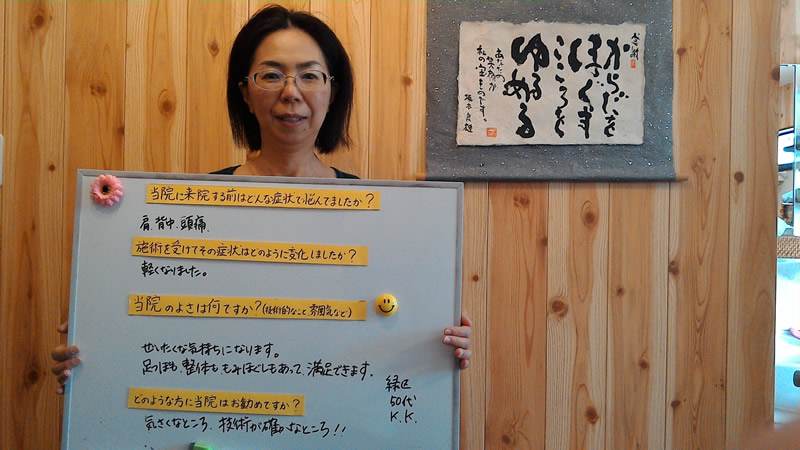 当院に来院する前はどんな症状で悩んでましたか？
肩、背中、頭痛、
施術を受けてその症状はどのように変化しましたか？
軽くなりました。
当院のよさは何ですか？(技術的なこと 雰囲気など)
ぜいたくな気持ちになります。
足つぼも、整体も、もみほぐしもあって、満足できます。
どのような方に当院はお勧めですか？
気さくなところ、技術が確かなところ！！
緑区
50代
K.K.
からだを
ほぐす
こころを
ゆるめる
あなたの
笑顔が
私の宝ものです。